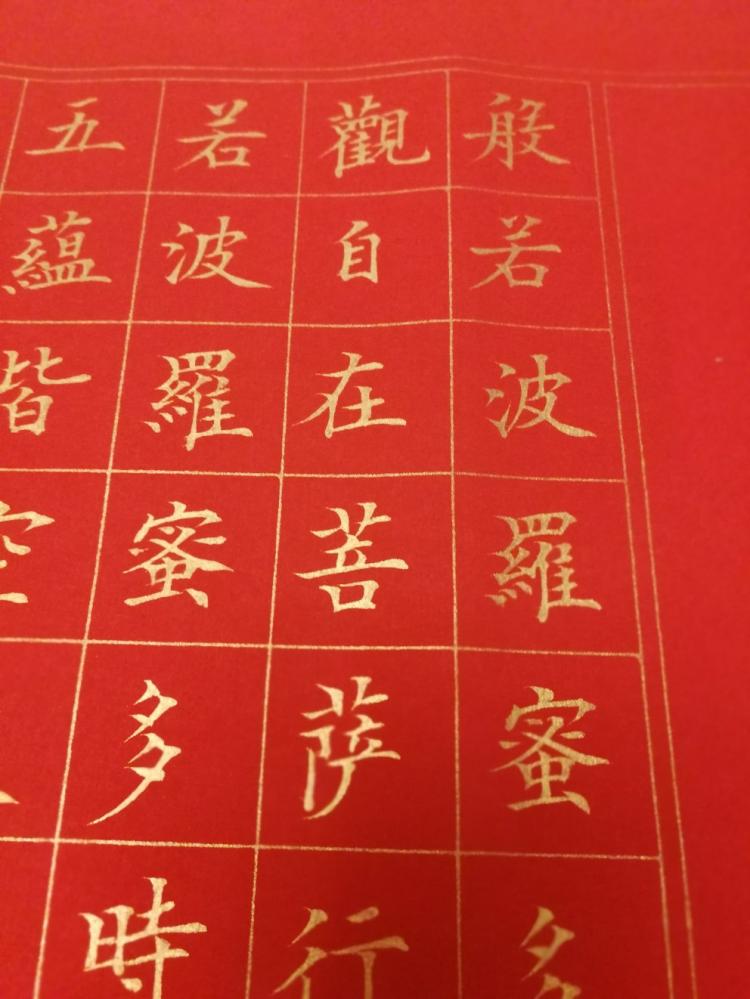 般若波羅蜜多
觀自在菩薩行
若波羅蜜多時
五蘊皆空